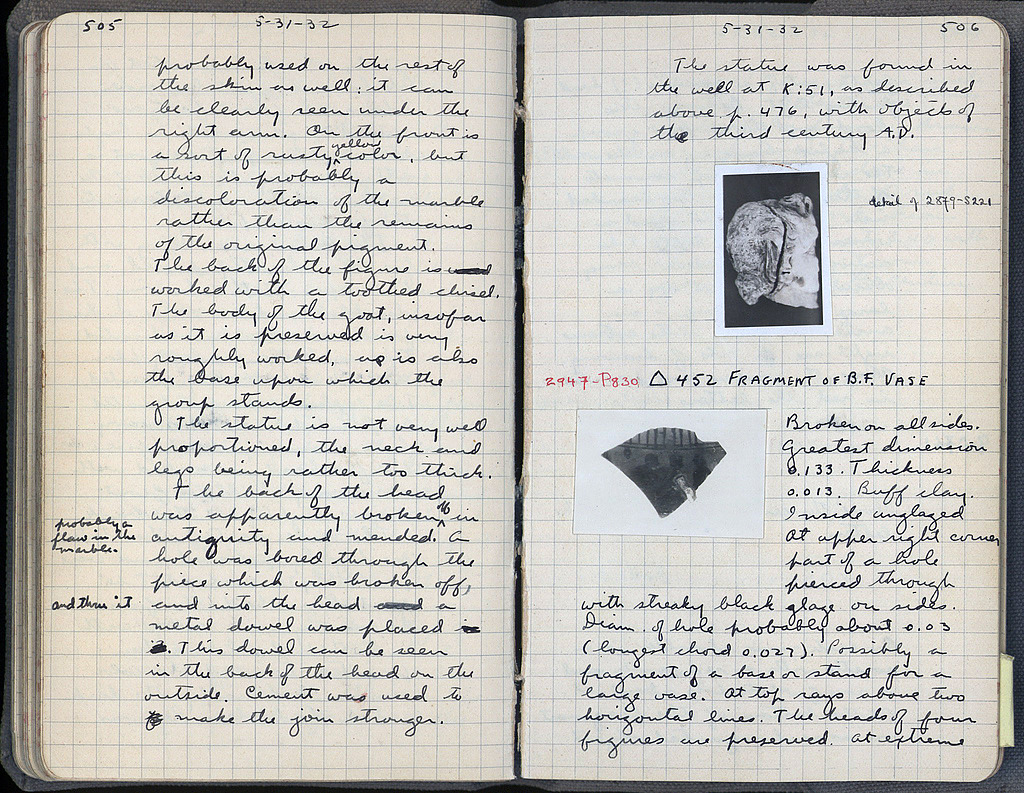 505
5-31-32
probably used on the rest of
the skin as well: it can
be clearly seen under the
right arm. On the front is
a sort of rusty yellow color, but
this is probably a
discoloration of the marble
rather than the remains
of the original pigment.
The back of the figure is
worked with a toothed chisel.
The body of the goat, insofar
as it is preserved is very
roughly worked, as is also
the base upon which the
group stands.
The statue is not very well
proportioned, the neck and
legs being rather too thick.
The back of the head
was apparently broken off in
antiquity and mended. A
probably a
flaw in the
marble.
hole was bored through the
piece which was broken off,
and into the head a
and thru it
metal dowel was placed
This dowel can be seen
in the back of the head on the
outside. Cement was used to
make the join stronger.
5-31-32
506
The statue was found in
the well at K:51, as described
above p. 476, with objects of
the third century A.D.
detail of 2879-S221
2947-P830 △ 452 FRAGMENT OF B.F. VASE
Broken on all sides.
Greatest dimension
0.133. Thickness
0.013. Buff clay.
Inside unglazed
At upper right corner
part of a hole
pierced through
with streaky black glaze on sides.
Diam. of hole probably about 0.03
(longest chord 0.027). Possibly a
fragment of a base or stand for a
large vase. At top rays above two
horizontal lines. The heads of four
figures are preserved. At extreme